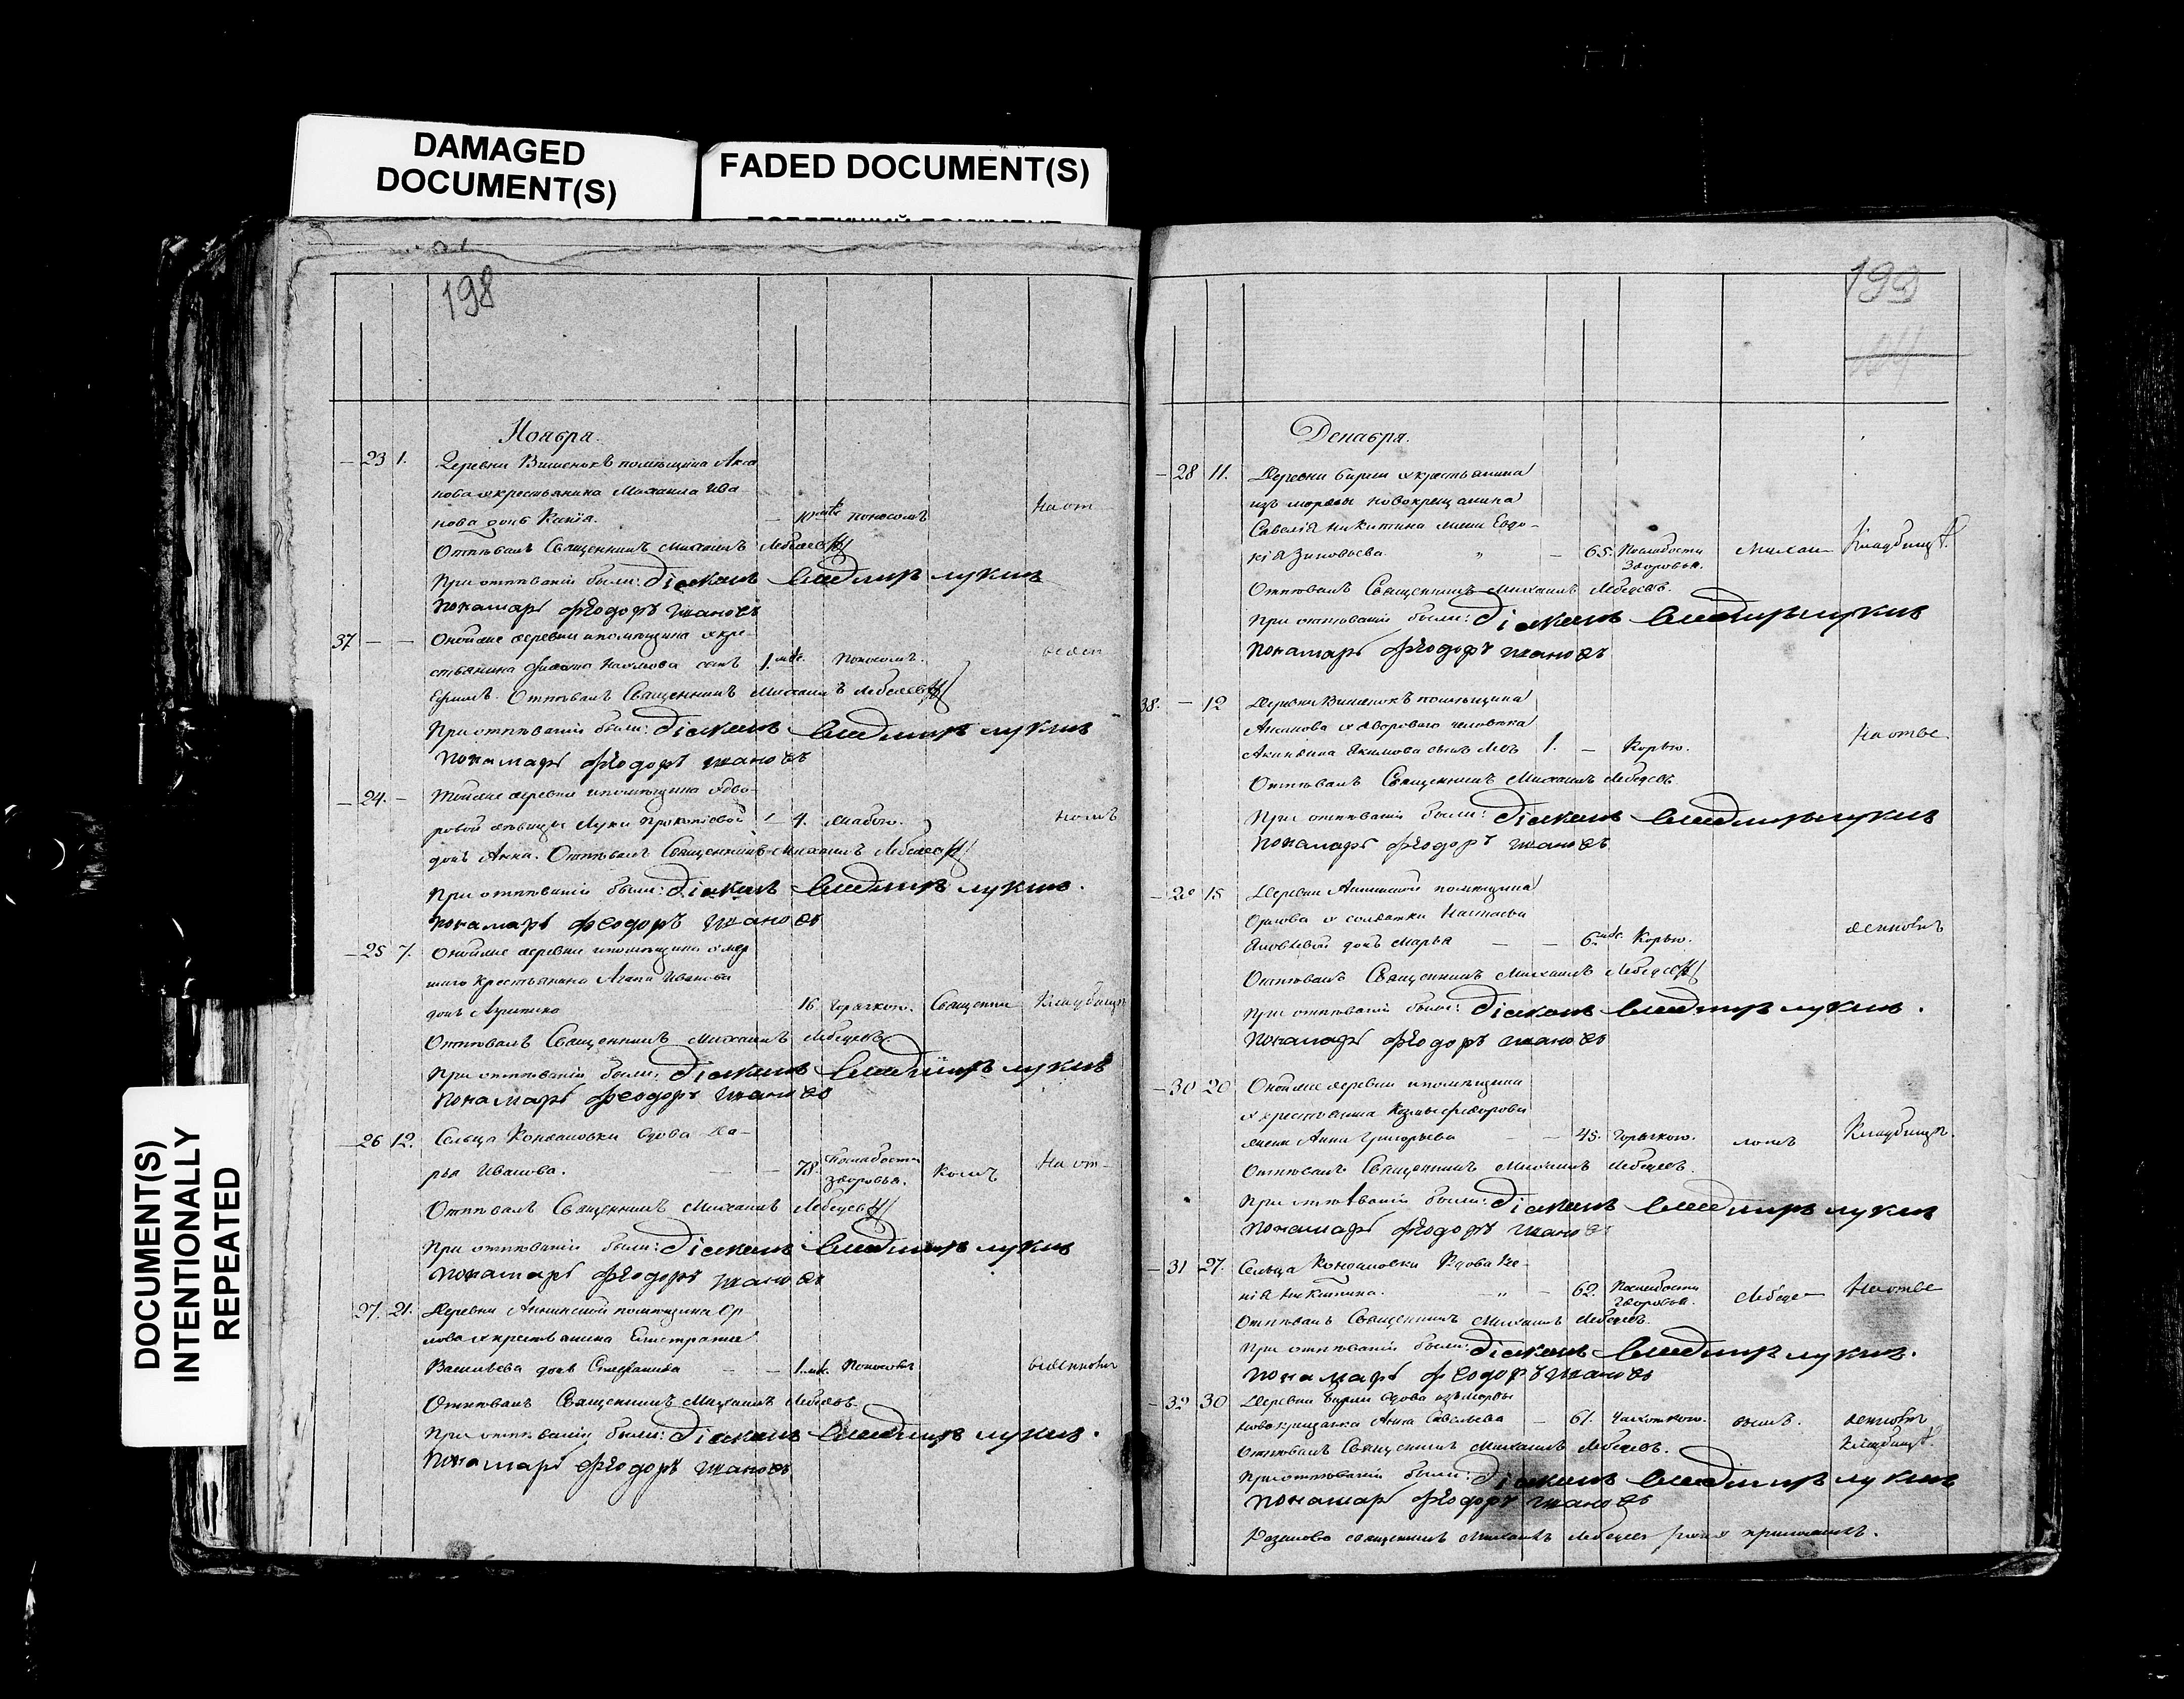 DAMAGED
DOCUMENT(S)
FADED DOCUMENT(S)
DOCUMENT(S)
INTENTIONALLY
REPEATED
198
Ноября.
23 1. Деревни Вишенокъ помѣщика Ака
нова крестьянина Михаила Ива
нова дочь 10 поносомъ На от
Отпѣвалъ Священникъ Михаилъ Лебедевъ
При отпѣваніи были: Діаконъ Владимиръ Лукинъ
Пономарь Феодоръ Ивановъ
37 Оной же деревни и помѣщика кре-
стьянина Наумова сынъ 1 мѣс. Поносомъ.
Ефимъ. Отпѣвалъ Священникъ Михаилъ Лебедевъ
При отпѣваніи были: Діаконъ Владимиръ Лукинъ
Пономарь Феодоръ Ивановъ
24. Той же деревни и помѣщика дво-
ровой дѣвицы 4. номъ
дочь Анна. Отпѣвалъ Священникъ Михаилъ Лебедевъ
При отпѣваніи были: Діаконъ Владимиръ Лукинъ.
Пономарь Феодоръ Ивановъ
25 7. Оной же деревни и помѣщика умер
шаго крестьянина Иванова
дочь 16 Горячкою. Священни Кладбищѣ
Отпѣвалъ Священникъ Михаилъ Лебедевъ
При отпѣваніи были: Діаконъ Владимиръ Лукинъ
Пономарь Феодоръ Ивановъ
26 12. Сельца вдова Да-
рья Иванова. 78. По слабости здоровья. комъ На от-
Отпѣвалъ Священникъ Михаилъ Лебедевъ
При отпѣваніи были: Діаконъ Владимиръ Лукинъ
Пономарь Феодоръ Ивановъ
27. 21. Деревни Аннинской помѣщика Ор
лова крестьянина Елистрата
Васильева дочь Степанида 1 мѣс. Поносомъ веденномъ
Отпѣвалъ Священникъ Михаилъ Лебедевъ.
При отпѣваніи были: Діаконъ Владимиръ Лукинъ.
Пономарь Феодоръ Ивановъ
199
Декабря.
28 11. Деревни крестьянина
изъ мордвы новокрещанина
Савелія Никитина жена Евдо-
кія Зиновьева 65. По слабости здоровья. Михаи Кладбищѣ.
Отпѣвалъ Священникъ Михаилъ Лебедевъ.
При отпѣваніи были: Діаконъ Владимиръ Лукинъ
Пономарь Феодоръ Ивановъ
38. 12 Деревни Вишенокъ помѣщика
Акинова двороваго человѣка
Якимова сынъ 1. Корью. На отве
Отпѣвалъ Священникъ Михаилъ Лебедевъ
При отпѣваніи были: Діаконъ Владимиръ Лукинъ
Пономарь Феодоръ Ивановъ
29 15 Деревни Аннинской помѣщика
Орлова солдатки Настасьи
Яковлевой дочь Марья 6 мѣс. Корью. денномъ
Отпѣвалъ Священникъ Михаилъ Лебедевъ
При отпѣваніи были: Діаконъ Владимиръ Лукинъ.
Пономарь Феодоръ Ивановъ
30 20 Оной же деревни и помѣщика
крестьянина Козмы Федорова
жена Анна Григорьева 45. Горячкою. ломъ Кладбищѣ.
Отпѣвалъ Священникъ Михаилъ Лебедевъ.
При отпѣваніи были: Діаконъ Владимиръ Лукинъ
Пономарь Феодоръ Ивановъ
31 27. Сельца вдова Ксе-
нія Никитина. 62. По слабости здоровья. Лебеде На отве
Отпѣвалъ Священникъ Михаилъ Лебедевъ.
При отпѣваніи были: Діаконъ Владимиръ Лукинъ.
Пономарь Феодоръ Ивановъ
32 30 Деревни вдова изъ мордвы
новокрещанка Анна Савельева 61. Чахоткою. вымъ. денномъ
Отпѣвалъ Священникъ Михаилъ Лебедевъ. Кладбищѣ.
При отпѣваніи были: Діаконъ Владимиръ Лукинъ
Пономарь Феодоръ Ивановъ
священникъ Михаилъ Лебедевъ